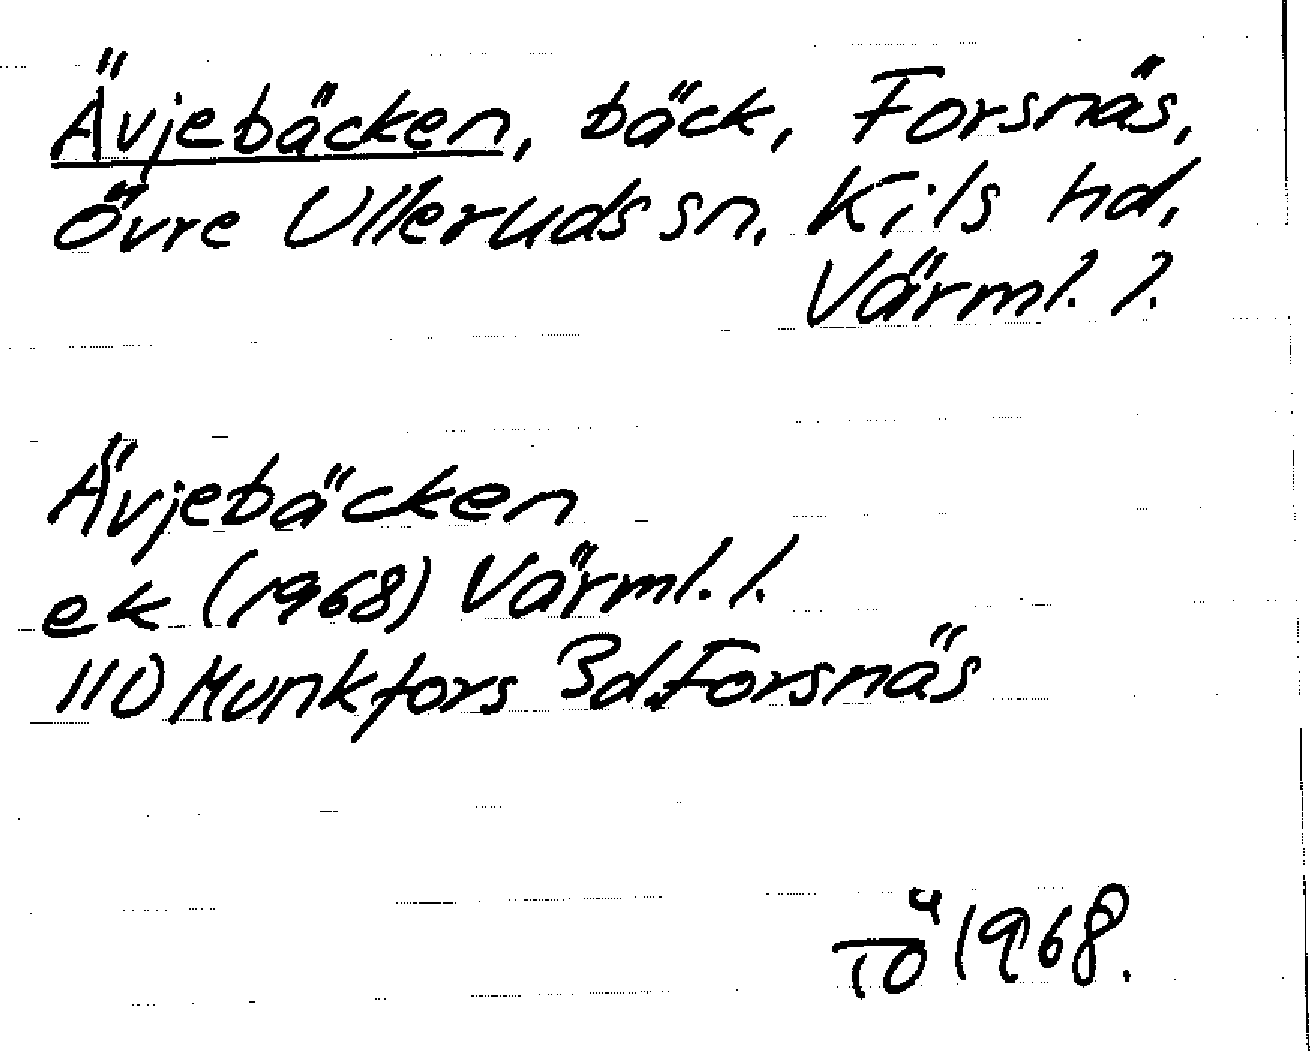 Ävjebäcken, bäck, Forsnäs,
Övre Ulleruds sn, Kils hd,
Värml. l.
Ävjebäcken
ek (1968) Värml. l.
11D Munkfors 3d. Forsnäs
TÖ 1968.